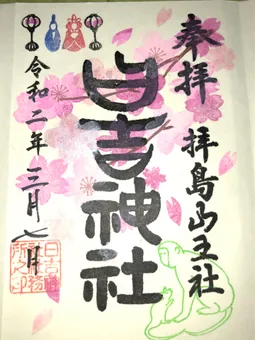 奉拝
拝島山王社
日吉神社
令和二年三月七日
日吉神社社務所之印